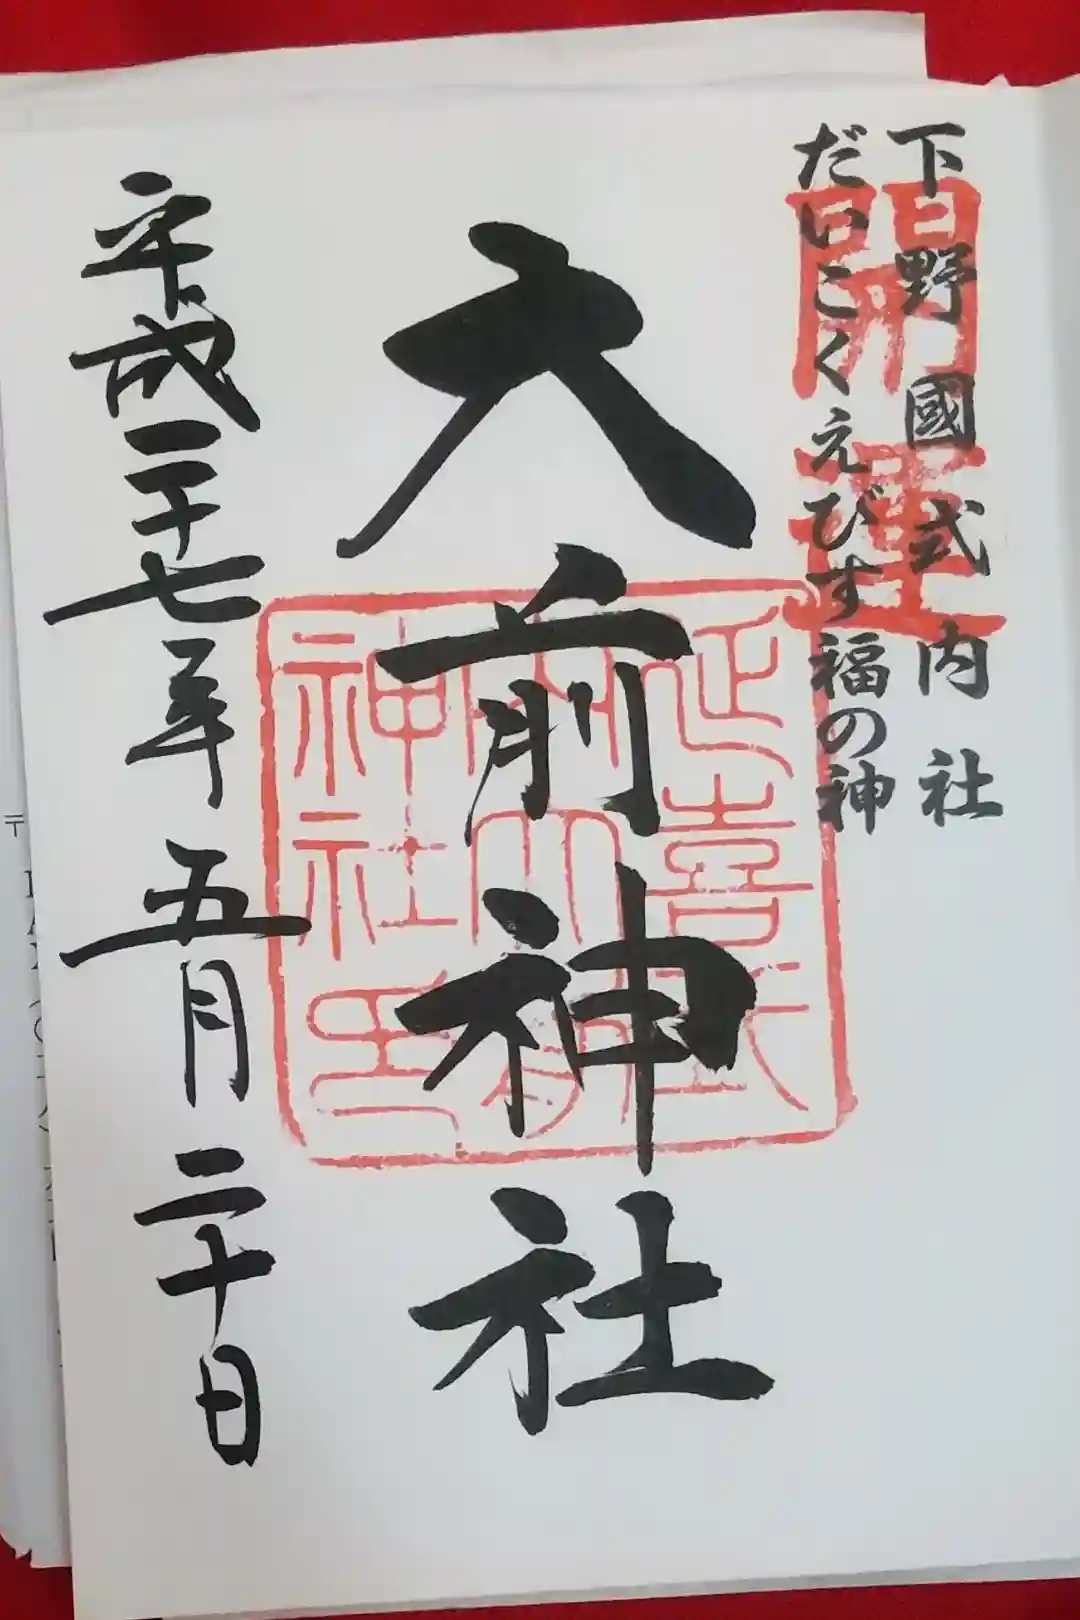 下野國式内社
だいこくえびす福の神
開運
大前神社
延喜式
内大前
神社印
平成二十七年五月二十日
〒